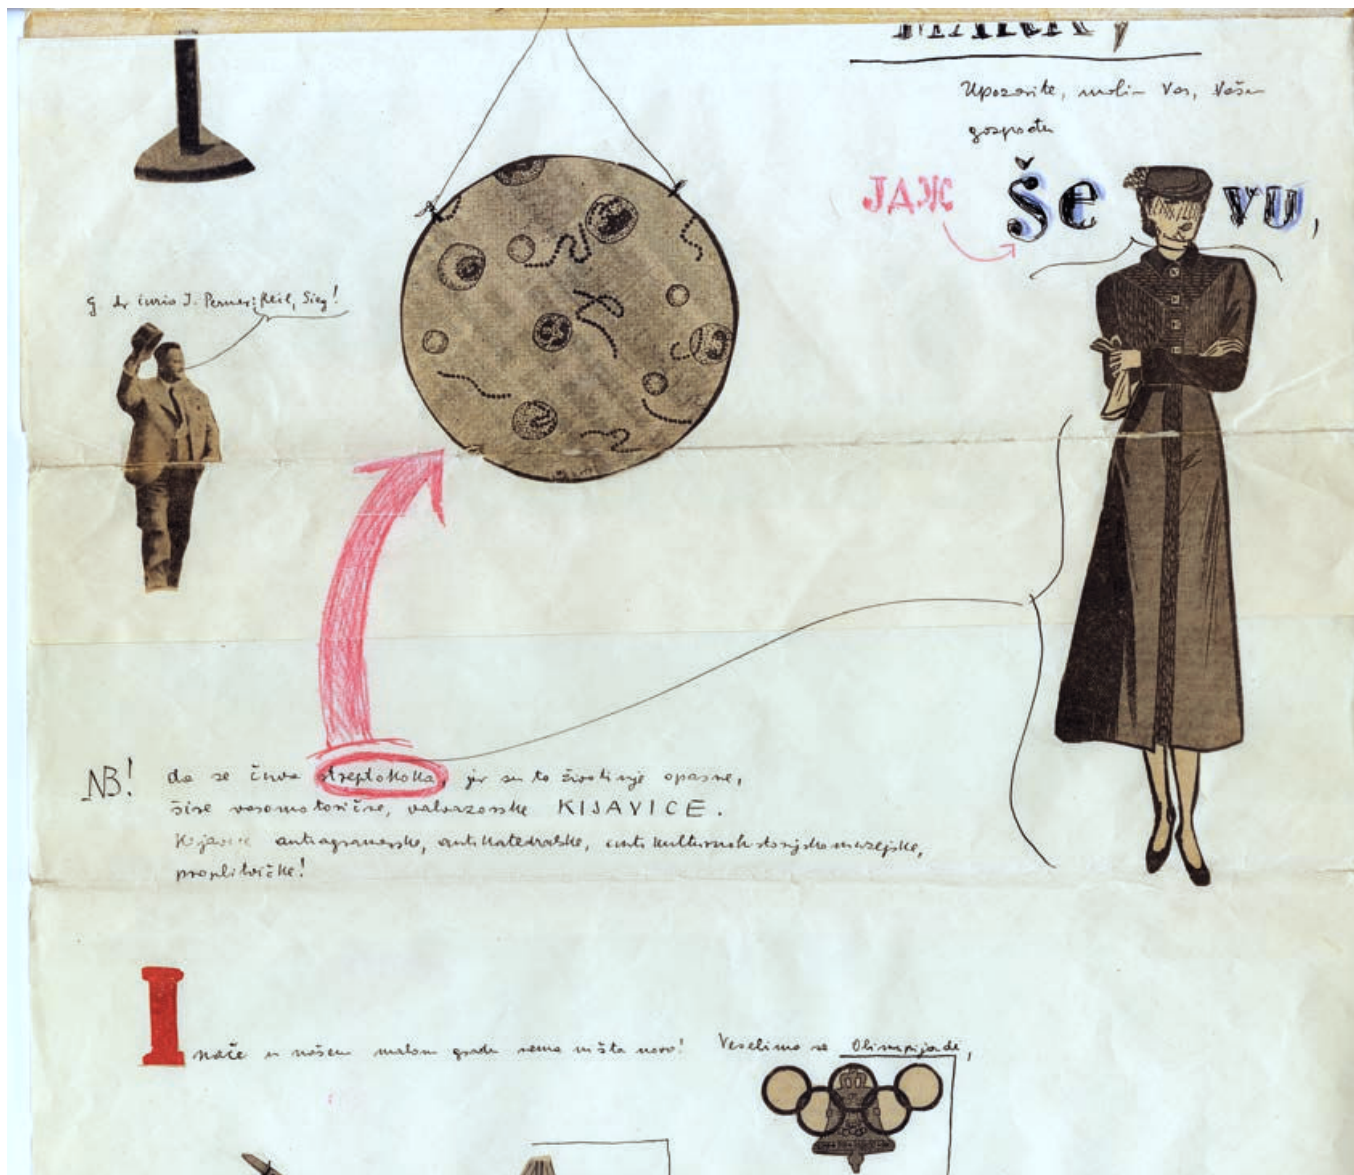 Upozorite, molim Vas, Vašu
gospođu
JAЖ Še vu,
g. dr Ćurio I. Perner: Heil, Sieg!
NB! da se čuva streptokoka, jer su to životinje opasne,
šire vasomotorične, valvazorske KIJAVICE.
Kijavice antiagramerske, antikatedralske, anti kulturnohistorijskomuzejske,
proplitvičke!
Inače u našem malom gradu nema ništa novo! Veselimo se Olimpijadi,